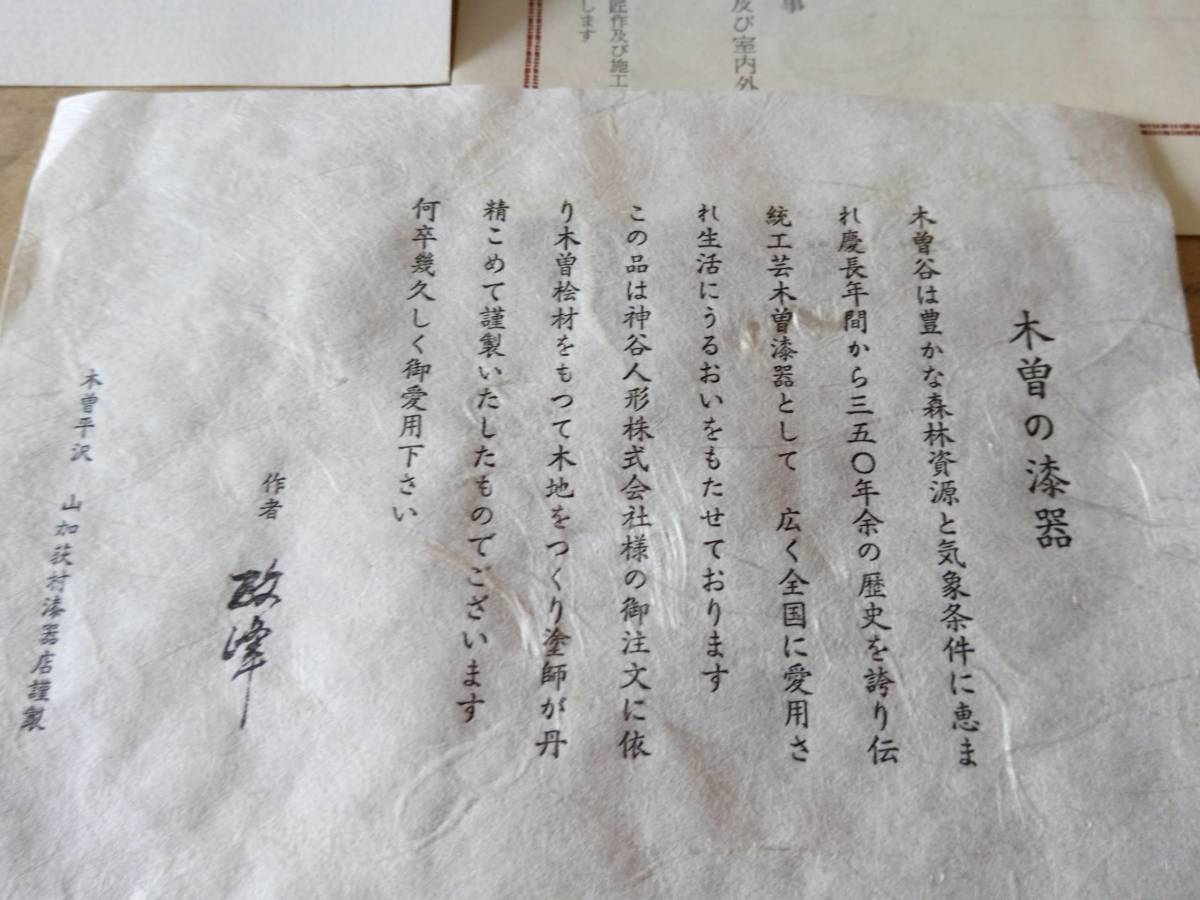 木曽の漆器
木曽谷は豊かな森林資源と気象条件に恵ま
れ慶長年間から三五〇年余の歴史を誇り伝
統工芸木曽漆器として　広く全国に愛用さ
れ生活にうるおいをもたせております
この品は神谷人形株式会社様の御注文に依
り木曽桧材をもつて木地をつくり塗師が丹
精こめて謹製いたしたものでございます
何卒幾久しく御愛用下さい
作者　政峰
木曽平沢　山加荻村漆器店謹製
事
及び室内外
匠作及び施工
します